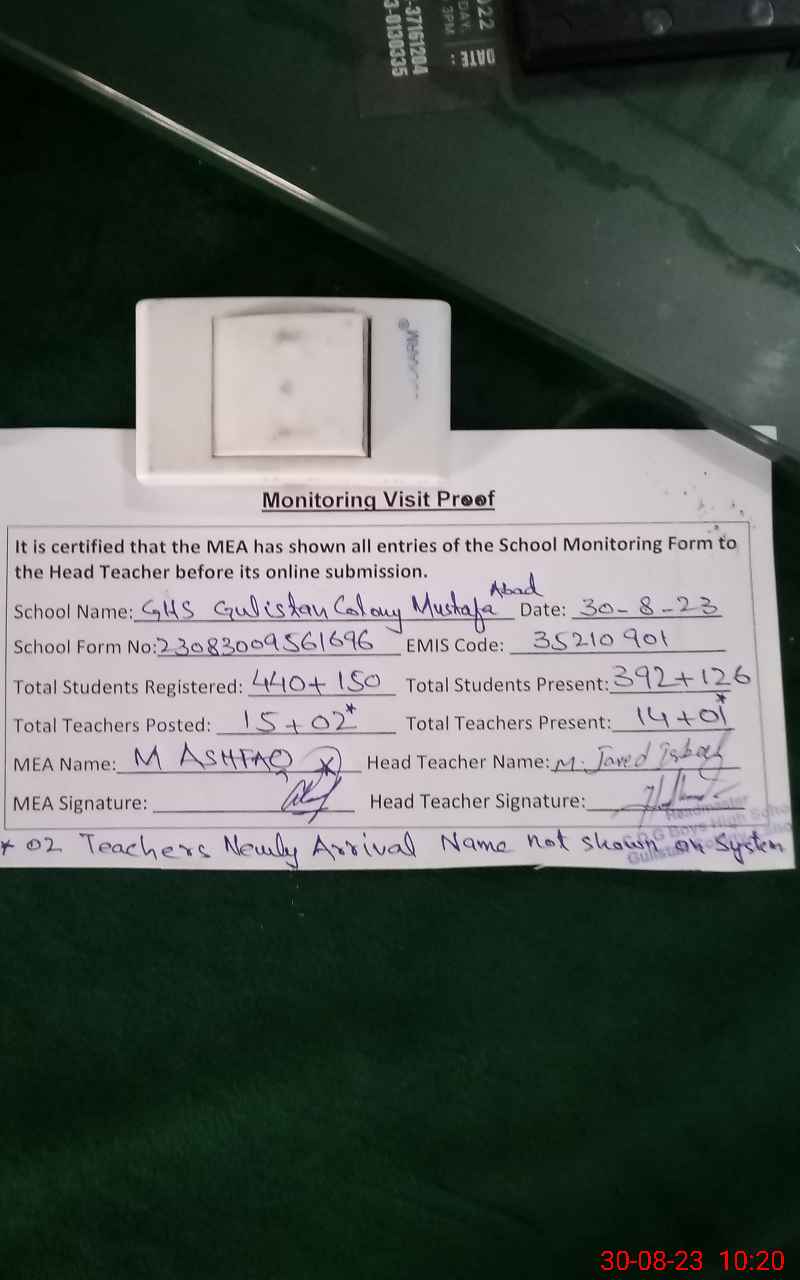 022
DAY:
3PM
DATE :
-37161204
3-0130335
Monitoring Visit Proof
It is certified that the MEA has shown all entries of the School Monitoring Form to
the Head Teacher before its online submission.
School Name: GHS Gulistan Colony Mustafa Abad Date: 30-8-23
School Form No: 23083009561696 EMIS Code: 35210901
Total Students Registered: 440+150 Total Students Present: 392+126
Total Teachers Posted: 15+02* Total Teachers Present: 14+01*
MEA Name: M ASHFAQ Head Teacher Name: M. Javed Iqbal
MEA Signature: Head Teacher Signature:
Headmaster
Boys High
* 02 Teachers Newly Arrival Name not shown on System
30-08-23 10:20